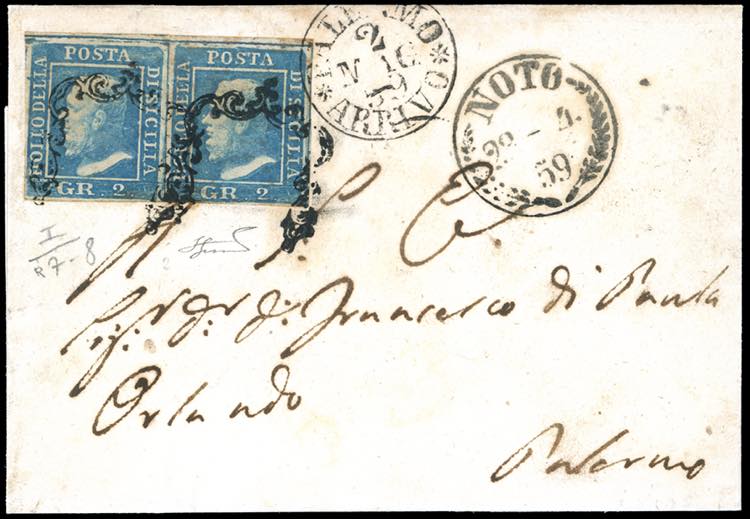 POSTA
BOLLO DELLA
DI SICILIA
GR. 2
POSTA
BOLLO DELLA
DI SICILIA
GR. 2
PALERMO
ARRIVO
NOTO
29 - 4.
59
I
R 7-8
Sig.r d.r d.n Francesco di Paula
Orlando
Palermo